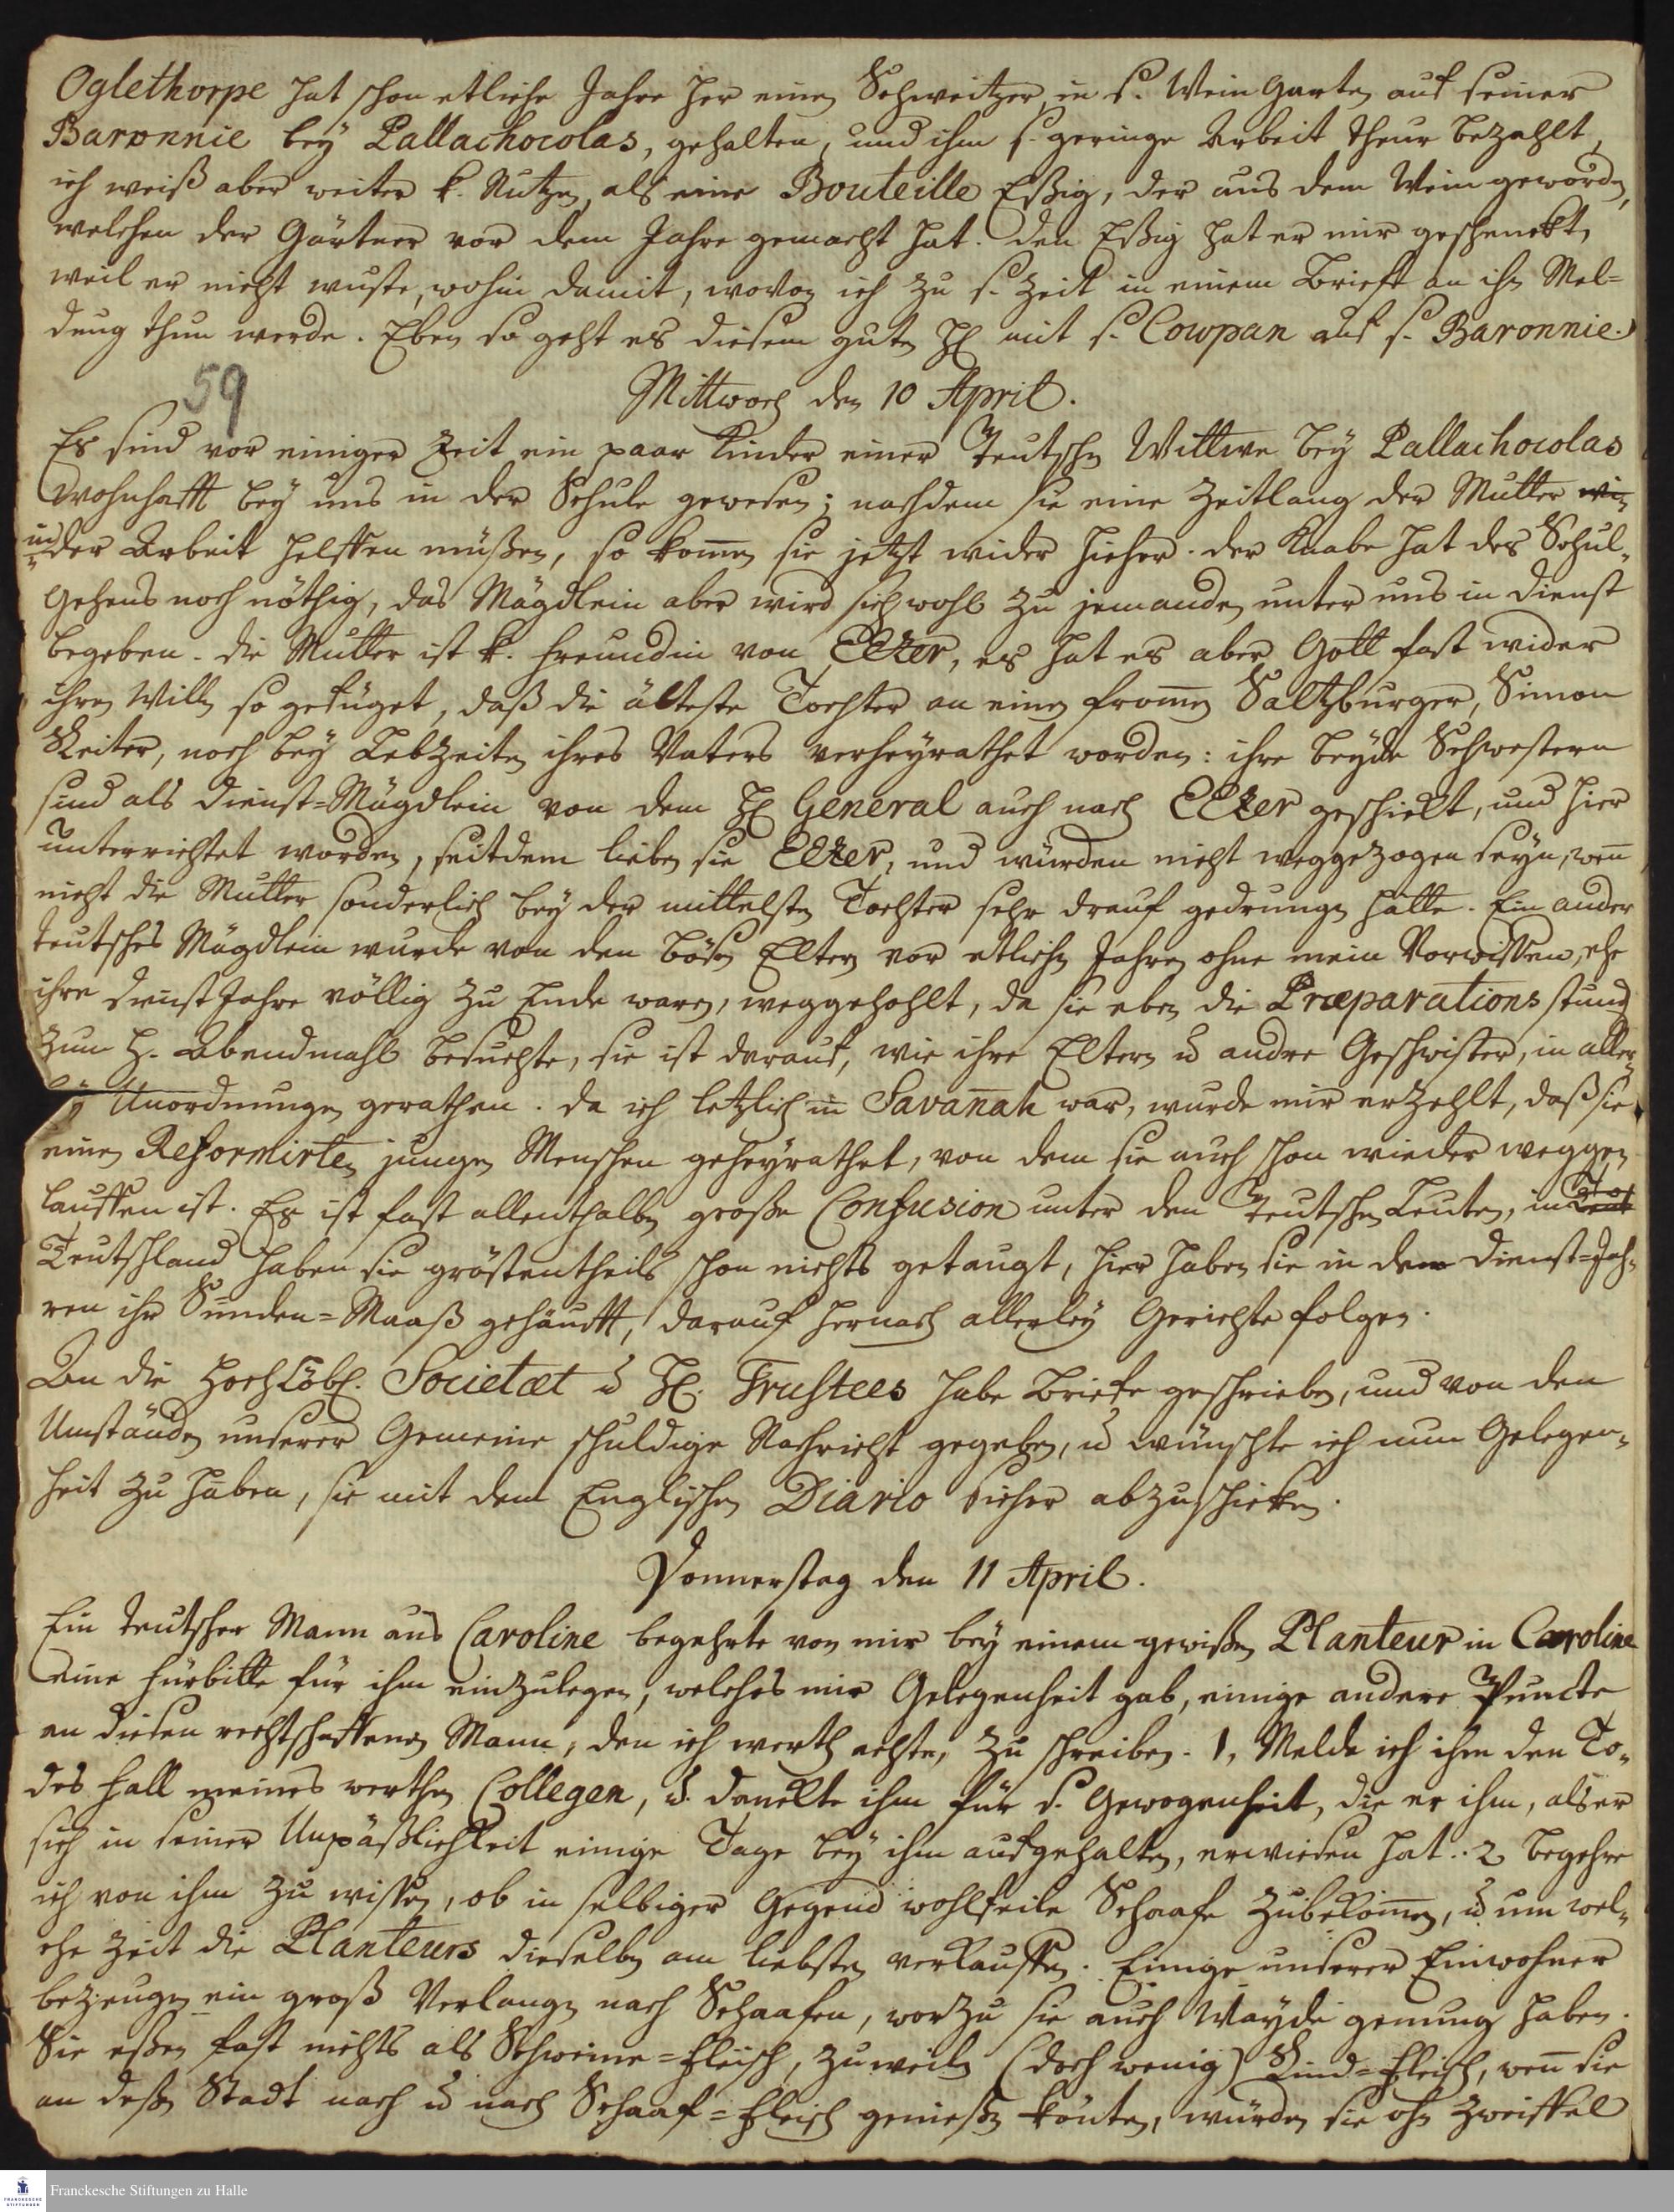 Oglethorpe hat schon etliche Jahre her einen Schweitzer in s. Wein Garten auf seiner
Baronnie bey Pallachocolas, gehalten, und ihm s. geringe Arbeit theur bezahlt,
ich weiß aber weiter k. Nutzen, als eine Bouteille Eßig, der aus dem Wein geworden,
welchen der Gärtner vor dem Jahre gemacht hat. Den Eßig hat er mir geschenckt,
weil er nicht wuste, wohin damit, wovon ich zu s. Zeit in einem Brieffe an ihn Mel=
dung thun werde. Eben so geht es diesem guten H. mit s. Cowpan auf s. Baronnie.
59
Mittwoch den 10 April.
Es sind vor einiger Zeit ein paar Kinder einer Teutschen Wittwe bey Pallachocolas
wohnhafft bey uns in der Schule gewesen; nachdem sie eine Zeitlang der Mutter wi-
in der Arbeit helffen müßen, so kom̅en sie jetzt wider hieher. Der Knabe hat des Schul-
Gehens noch nöthig, das Mägdlein aber wird sich wohl zu jemanden unter uns in Dienst
begeben. Die Mutter ist k. Freundin von EEzer, es hat es aber Gott fast wider
ihren Willen so gefüget, daß die älteste Tochter an einen from̅en Saltzburger, Simon
Reiter, noch bey Lebzeiten ihres Vaters verheyrathet worden: ihre beyde Schwestern
sind als Dienst=Mägdlein von dem H. General auch nach EEzer geschickt, und hier
unterrichtet worden, seitdem lieben sie EEzer, und würden nicht weggezogen seyn, wen̅
nicht die Mutter sonderlich bey der mittelsten Tochter sehr drauf gedrungen hätte. Ein ander
teutsches Mägdlein wurde von den bösen Eltern vor etlichen Jahren ohne mein Vorwissen, ehe
ihre Dienst Jahre völlig zu Ende waren, weggehohlt, da sie eben die Præparations stund
zum H. Abendmahl besuchte, sie ist darauf, wie ihre Eltern u. andre Geschwister, in aller-
ley Unordnungen gerathen. Da ich letzlich in Savan̅ah war, wurde mir erzehlt, daß sie
einen Reformirten jungen Menschen geheyrathet, von dem sie auch schon wieder wegge-
lauffen ist. Es ist fast allenthalben große Confusion unter den Teutschen Leuten, in
Teutschland haben sie gröstentheils schon nichts getaugt, hier haben sie in den Dienst=Jah-
ren ihr Sünden=Maaß gehäufft, darauf hernach allerley Gerichte folgen.
An die Hochlöbl. Societæt u. H. Trustees habe Briefe geschrieben, und von den
Umständen unserer Gemeine schuldige Nachricht gegeben, u. wünschte ich nun Gelegen-
heit zu haben, sie mit dem Englischen Diario sicher abzuschicken.
Donnerstag den 11 April.
Ein teutscher Mann aus Caroline begehrte von mir bey einem gewißen Planteur in Caroline
eine Fürbitte für ihm einzulegen, welches mir Gelegenheit gab, einige andere Puncte
an diesen rechtschaffenen Mann, den ich werth achte, zu schreiben. 1, Melde ich ihm den To-
des Fall meines werthen Collegen, u. danckte ihm für s. Gewogenheit, die er ihm, als er
sich in seiner Unpäßlichkeit einige Tage bey ihm aufgehalten, erwiesen hat. 2 begehre
ich von ihm zu wissen, ob in selbiger Gegend wohlfeile Schaafe zubekom̅en, u. um wel-
che Zeit die Planteurs dieselben am liebsten verkauffen. Einige unserer Einwohner
bezeugen ein groß Verlangen nach Schaafen, worzu sie auch Wayde genung haben.
Sie eßen fast nichts als Schweine=Fleisch, zuweilen (doch wenig) Rind=Fleisch, wen̅ sie
an deßen Statt nach u. nach Schaaf=Fleisch genießen könten, würden sie ohn Zweiffel
Franckesche Stiftungen zu Halle